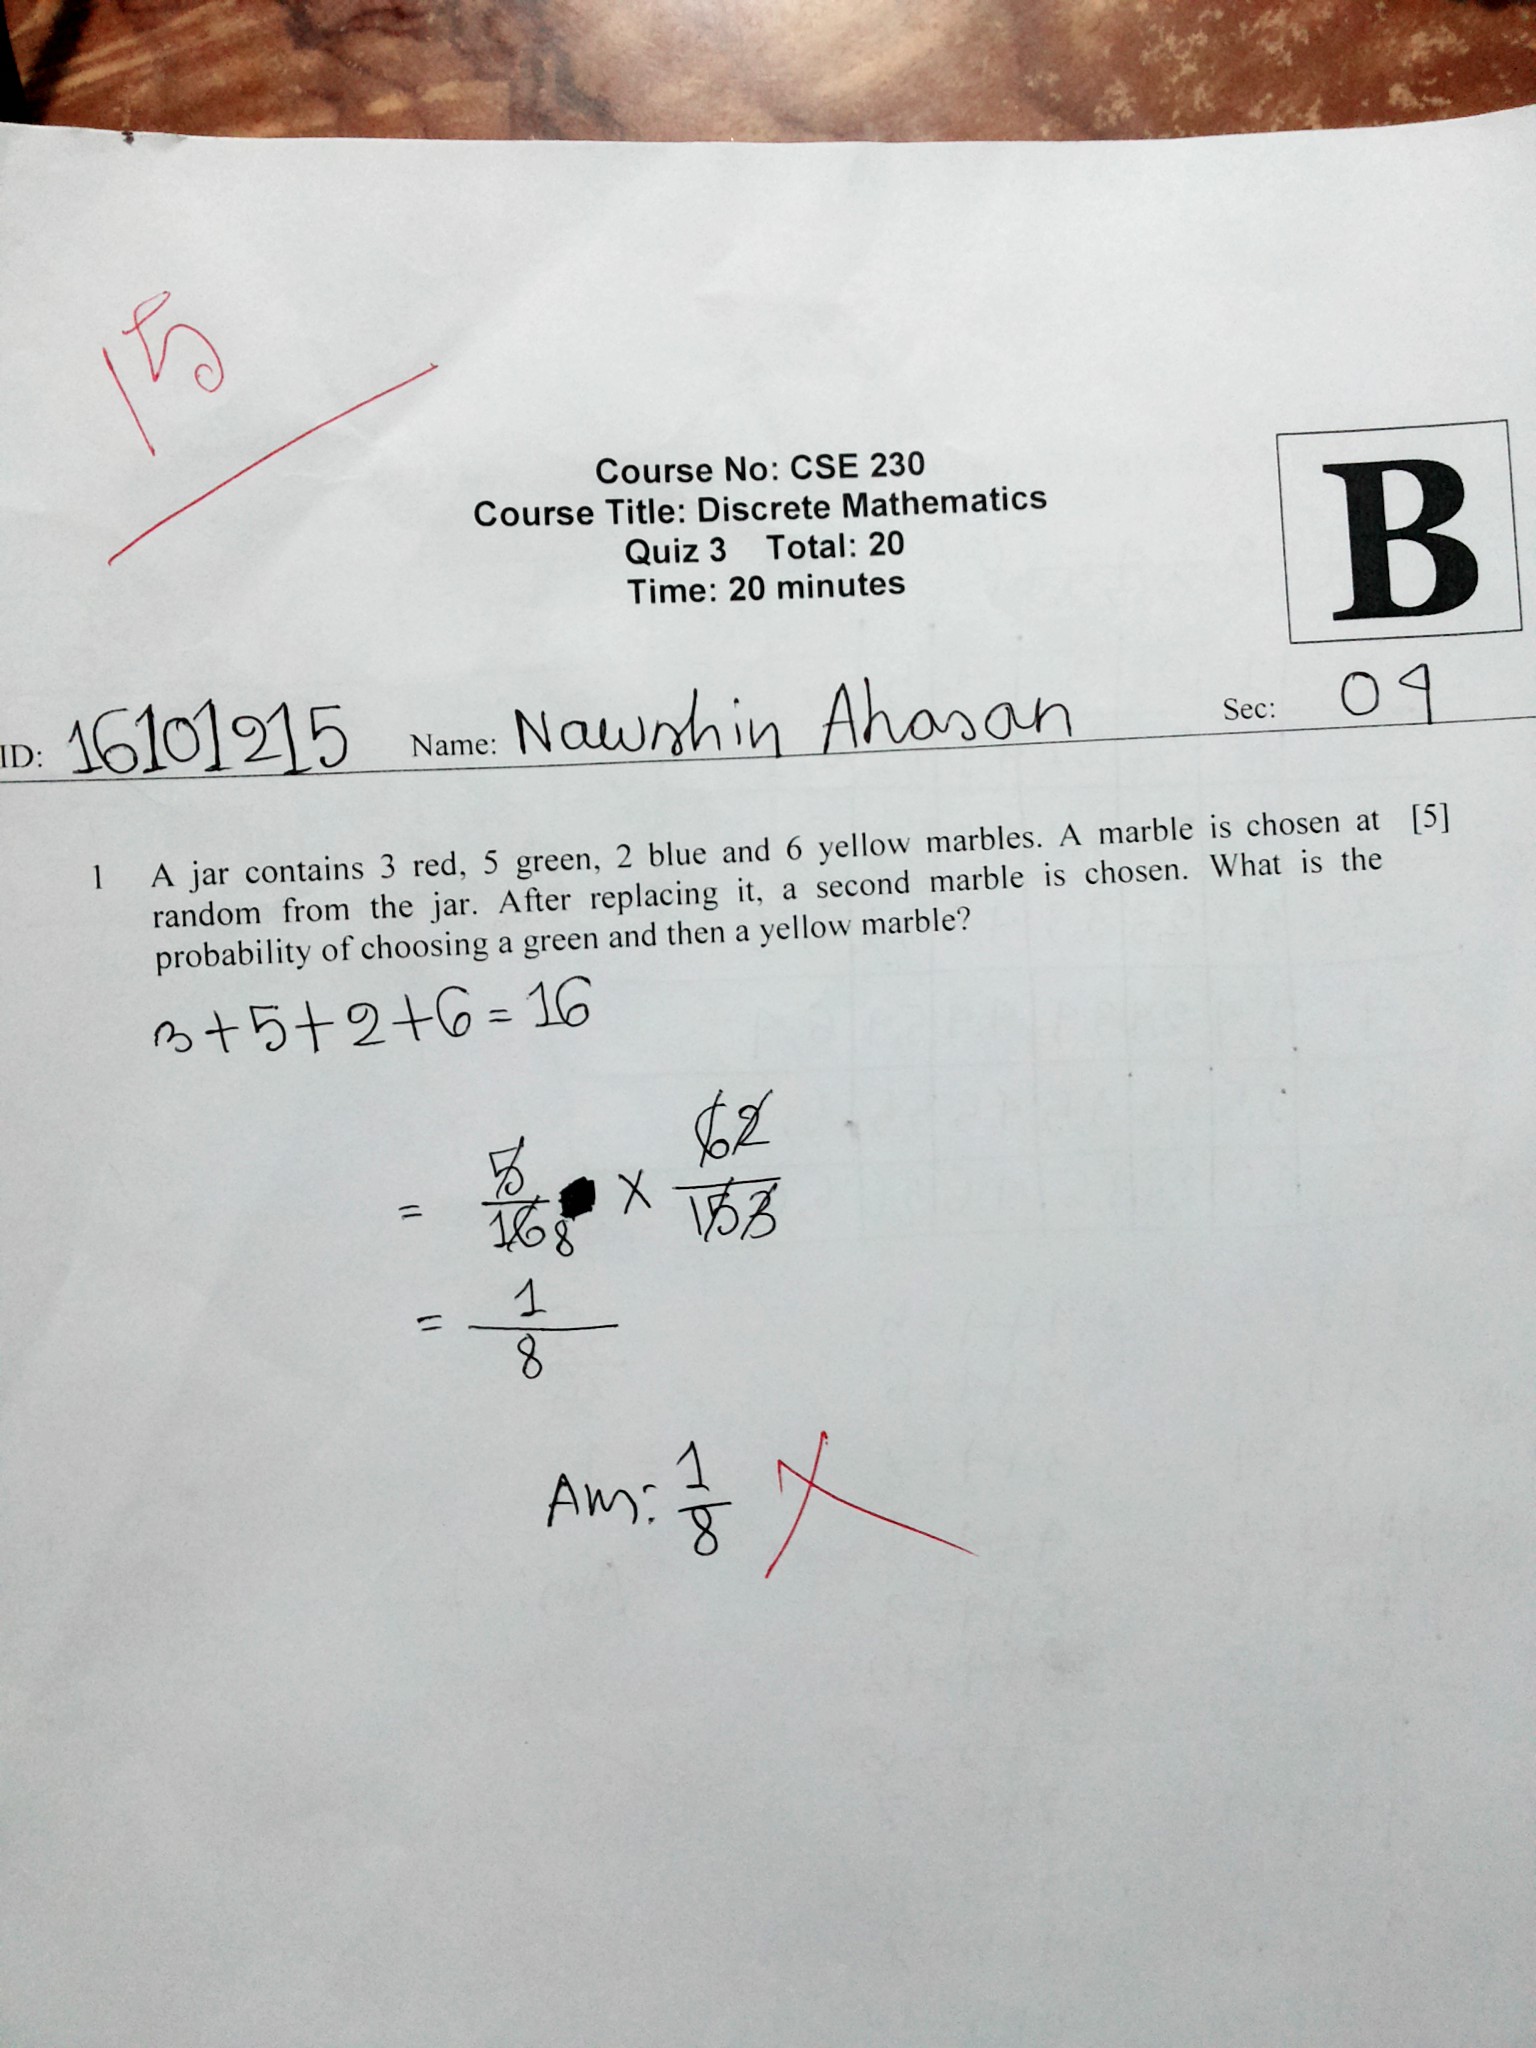 15
Course No: CSE 230
Course Title: Discrete Mathematics
Quiz 3 Total: 20
Time: 20 minutes
B
ID: 16101215 Name: Nawshin Ahasan Sec: 04
1 A jar contains 3 red, 5 green, 2 blue and 6 yellow marbles. A marble is chosen at [5]
random from the jar. After replacing it, a second marble is chosen. What is the
probability of choosing a green and then a yellow marble?
3+5+2+6=16
= 5/16 8 × 6 2/15 3
= 1/8
Ans: 1/8